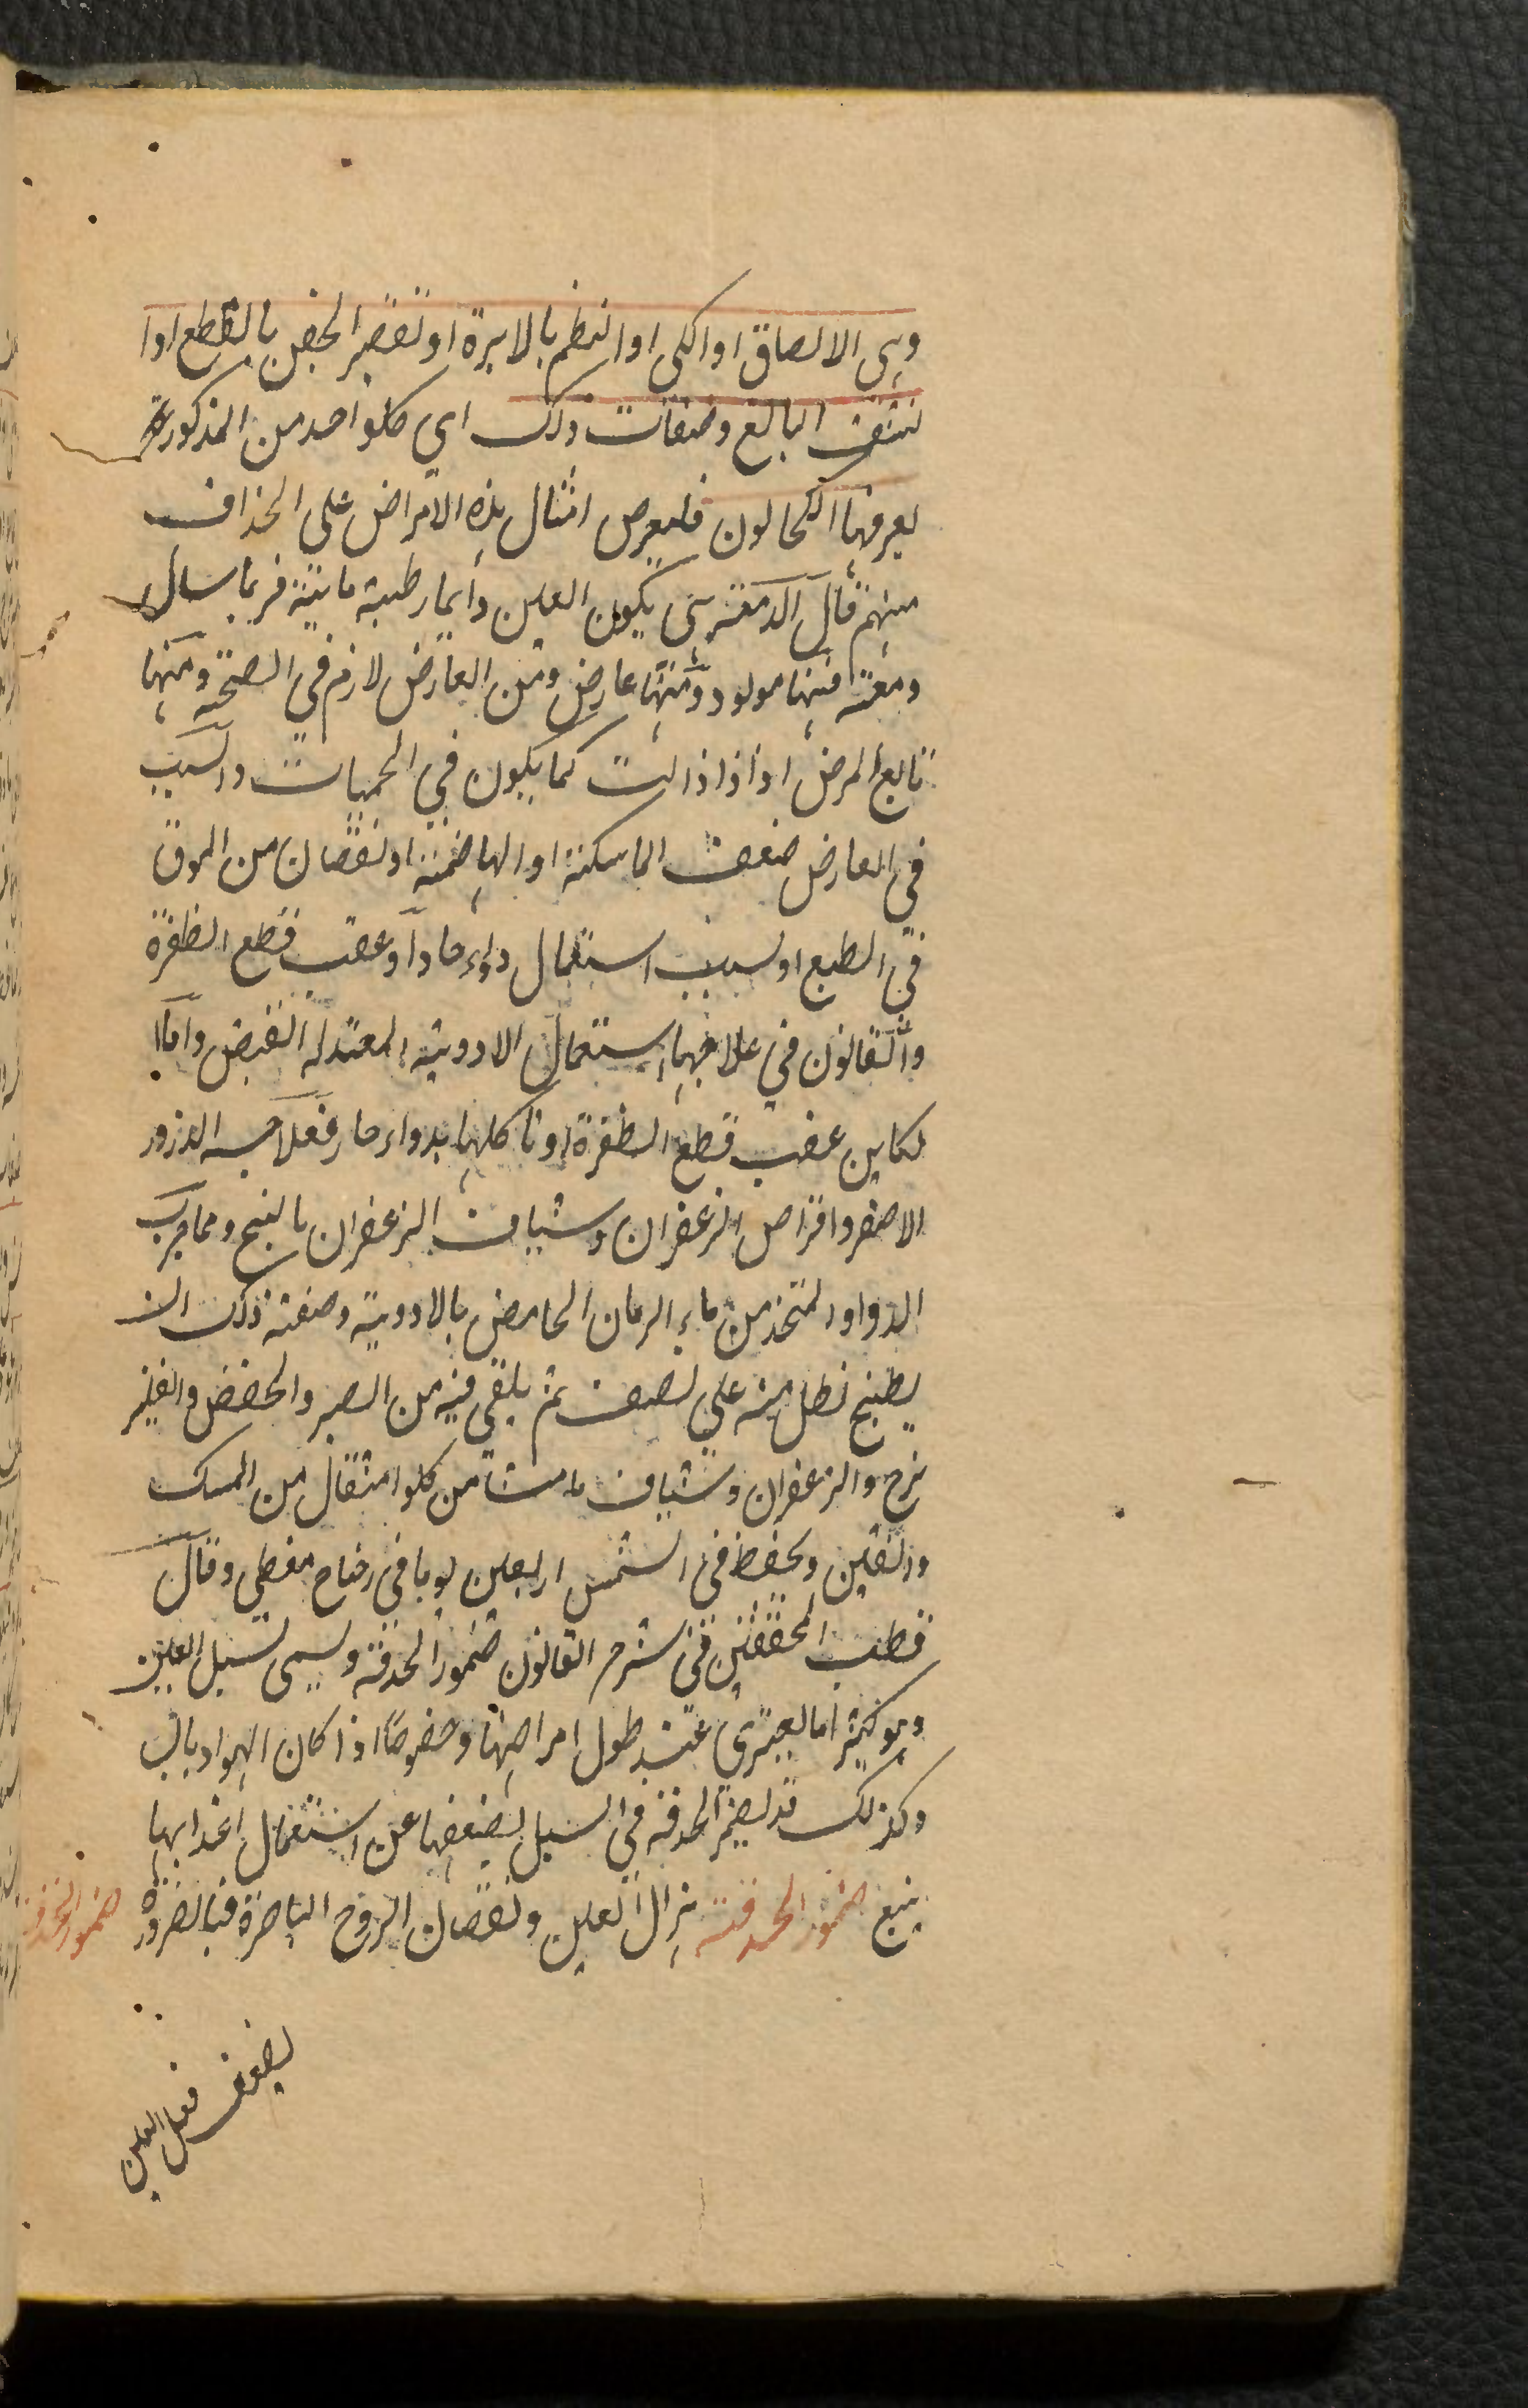 وهي الالصاق او الكى او النظم بالابرة او تقصير الجفن بالقطع او ا
لنتف البالغ وصفات ذلك اي كلواحد من المذكورة
يعرفها الكحالون فليعرض امثال هذه الامراض على الحذاف
منهم قال الدمعة هى يكون العين دايما رطبة مايية فربما سال
دمعة فمنها مولود ومنها عارض ومن العارض لازم في الصحة ومنها
تابع المرض اذا ذا ذالت كما يكون في الحميات والسبب
في العارض ضعف الماسكة او الهاضمة او نقصان من الموق
في الطبع او لسبب استعمال دواء حاد او عقب قطع الظفرة
والقانون في علاجها استعمال الادوية المعتدلة القبض واما ا
لكاين عقب قطع الظفرة او تاكلها بدواء حار فعلاجه الذرور
الاصفر واقراص الزعفران وشياف الزعفران بالبنج ومما جرب
الدواء المتخذ من ماء الرمان الحامض بالادوية وصفته ذلك ان
يطبخ نطل منه على نصف ثم يلقى فيه من الصبر والحضض والفيلز
هرج والزعفران وشياف ماميثا من كلوا مثقال من المسك
دانقين ويحفظ في الشمس اربعين يوما في زجاج مغطى وقال
قطب المحققين في شرح القانون ضمور الحدقة ويسمى سل العين
وهو كثيرا ما يعترى عند طول امراضها وخصوصا اذا كان الهواء يابس
وكذلك قد يضمر الحدقة في السبل لضعفها عن استعمال اغذايها
يتبع ضمور الحدقة هزال العين ونقصان الروح الباصرة فبالضرورة
ضمور الحدقة
يضعف فعل العين